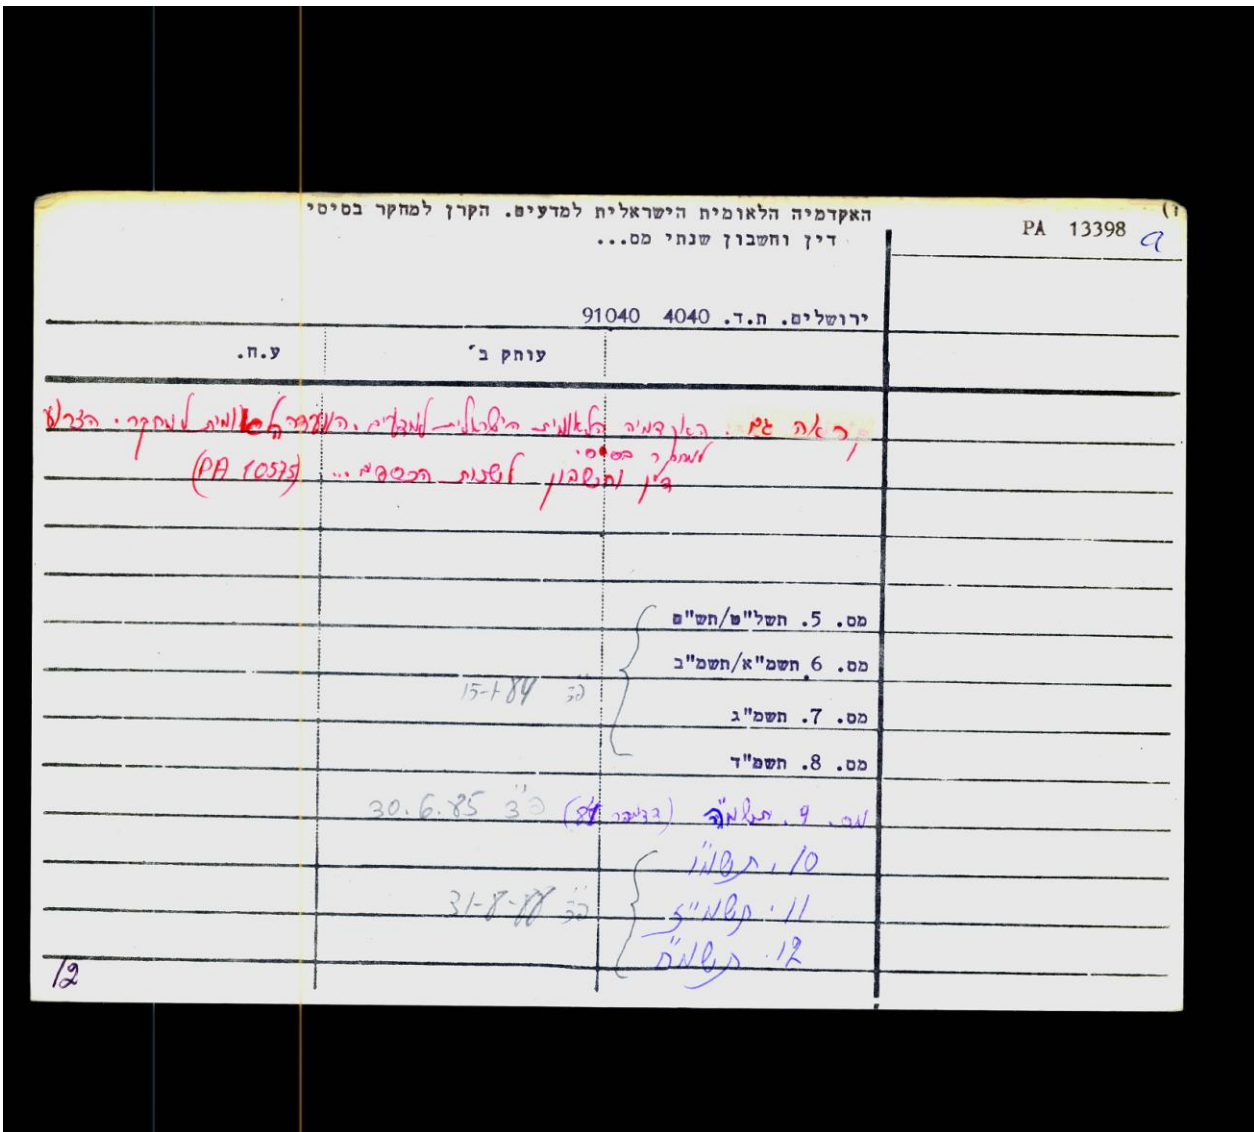 ז)
PA 13398 a
האקדמיה הלאומית הישראלית למדעים. הקרן למחקר בסיסי
דין וחשבון שנתי מס...
ירושלים. ת.ד. 4040 91040
עותק ב' ע.ח.
קראה גם: האקדמיה הלאומית הישראלית למדעים. הוועדה הלאומית למחקר.
למחקר בסיסי.
דין וחשבון לשנות הכספים... (PA 10575)
מס. 5. תשל"ט/תש"ם
מס. 6 תשמ"א/תשמ"ב
15-1-84
מס. 7. תשמ"ג
מס. 8. תשמ"ד
מס. 9. תשמ"ה (דצמבר 84) 30.6.85
10. תשמ"ו
11. תשמ"ז
31-8-88
12. תשמ"ח
12